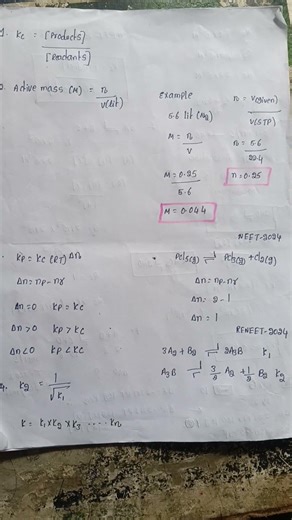 1. Kc = [Products]
[Reactants]
2. Active mass (M) = n
V(lit)
Example
5.6 lit (N2)
M = n
V
M = 0.25
5.6
M = 0.044
n = V(given)
V(STP)
n = 5.6
22.4
n = 0.25
NEET-2024
Kp = Kc (RT)Δn
Δn = np - nr
Δn = 0 Kp = Kc
Δn > 0 Kp > Kc
Δn < 0 Kp < Kc
PCl5(g) ⇌ PCl3(g) + Cl2(g)
Δn = np - nr
Δn = 2 - 1
Δn = 1
RENEET-2024
3A2 + B2 ⇌ 2A3B K1
A3B ⇌ 3/2 A2 + 1/2 B2 K2
4. K2 = 1
√K1
K = K1 x K2 x K3 ..... Kn